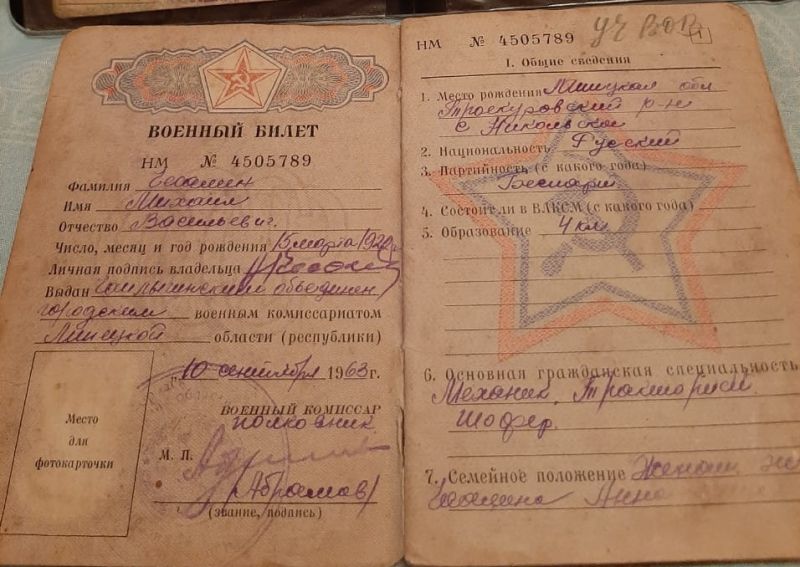 ВОЕННЫЙ БИЛЕТ
НМ № 4505789
Фамилия
Имя Михаил
Отчество Васильевич.
Число, месяц и год рождения 15 марта
Личная подпись владельца
Выдан объединен
городским военным комиссариатом
Липецкой области (республики)
"10" сентября 1963 г.
ВОЕННЫЙ КОМИССАР
полковник
М. П.
(Абрамов)
(звание, подпись)
Место
для
фотокарточки
НМ № 4505789 уч ВОВ
1
I. Общие сведения
1. Место рождения Липецкая обл
Троекуровский р-н
с Никольское
2. Национальность Русский
3. Партийность (с какого года)
Беспарт
4. Состоял ли в ВЛКСМ (с какого года)
5. Образование 4 кл
6. Основная гражданская специальность
Механик, Тракторист
Шофер.
7. Семейное положение Женат
Анна